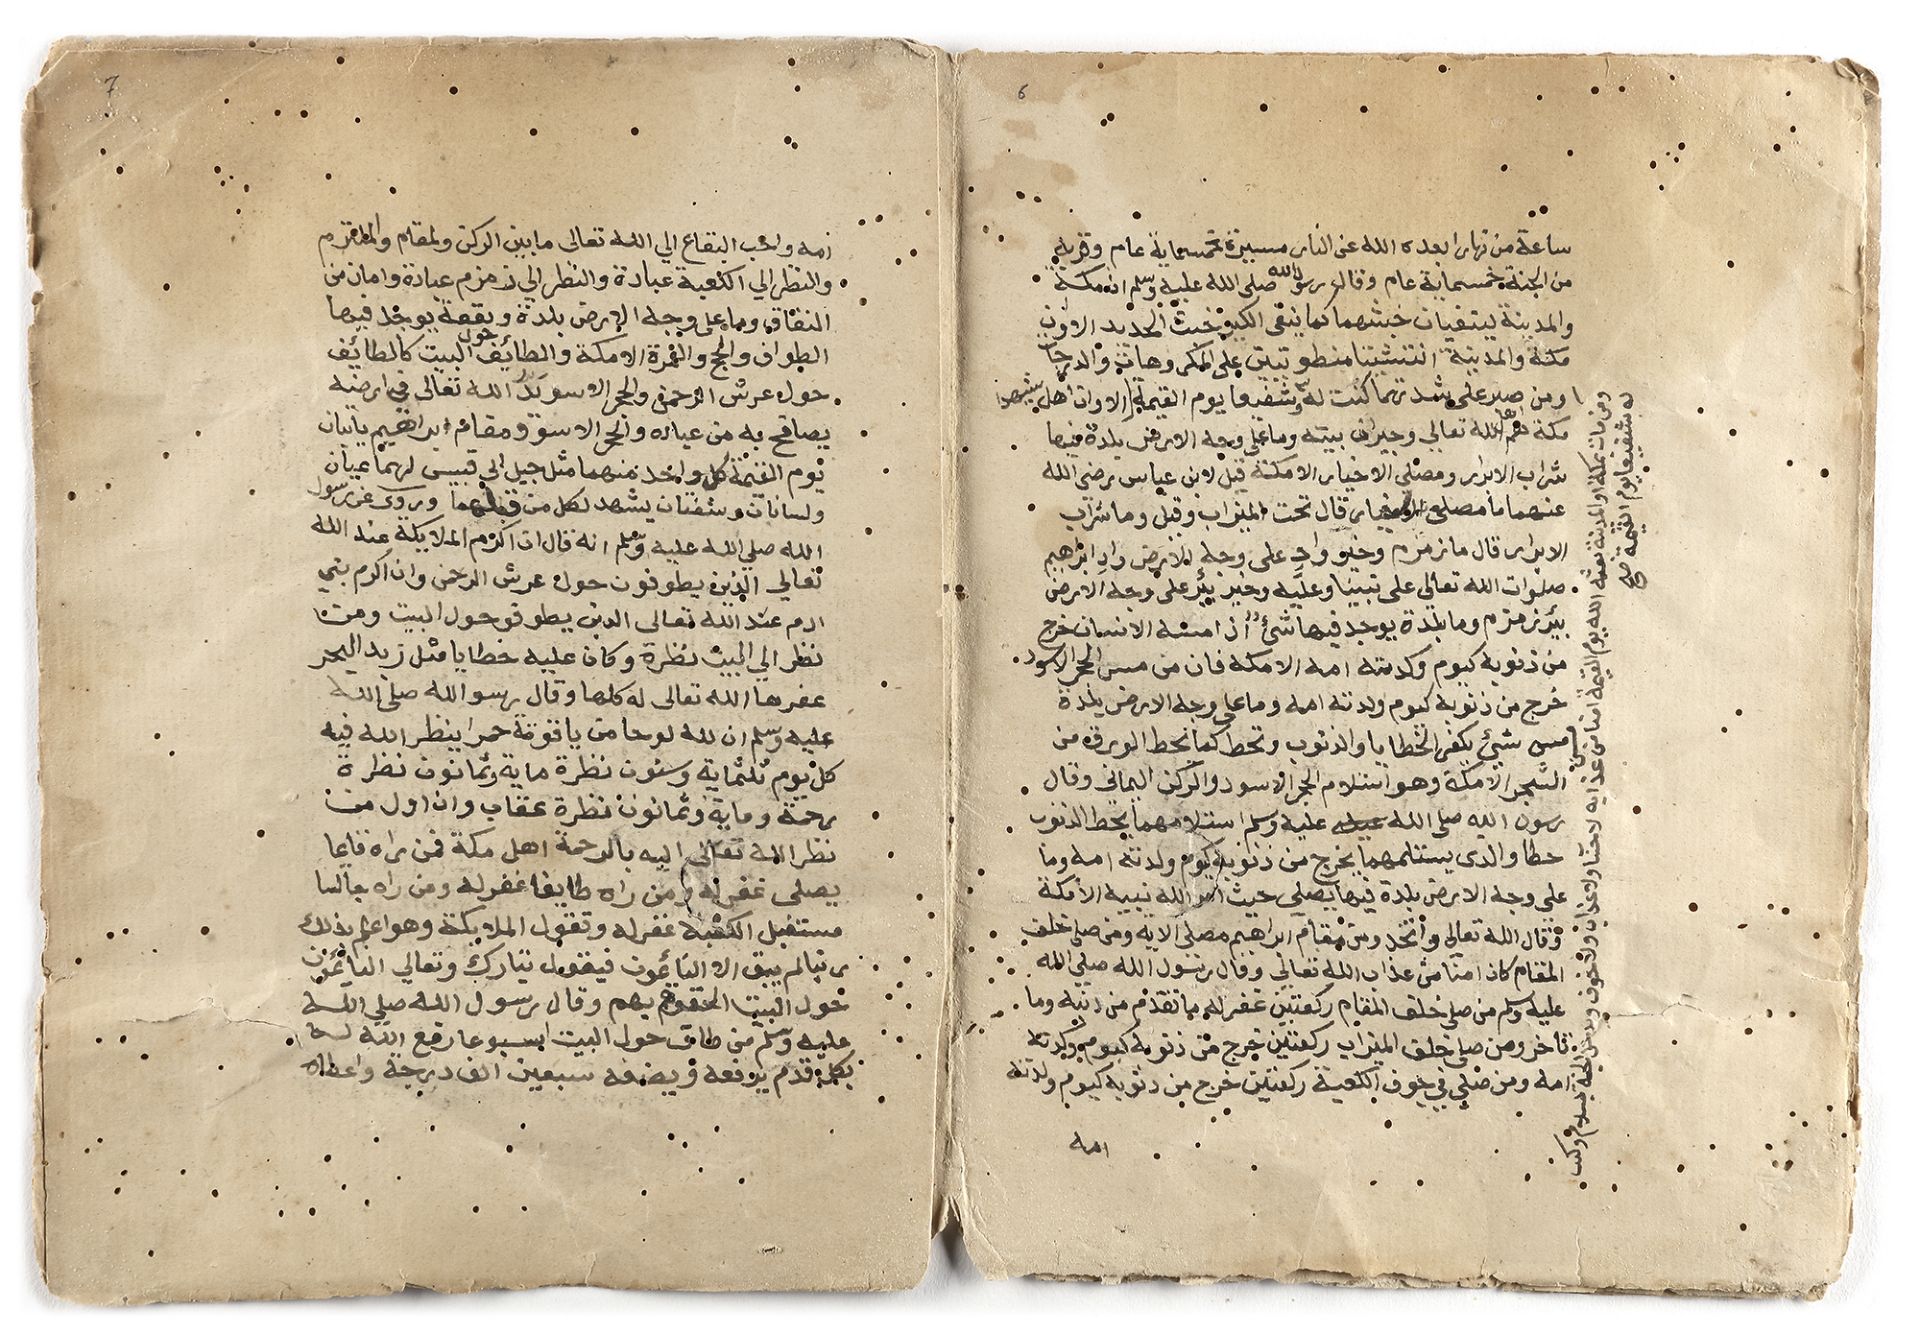 6
ساعة من نهار ابعده الله عن النار مسيرة خمسماية عام وقربه
من الجنة خمسماية عام وقال رسول الله صلى الله عليه وسلم ان مكة
والمدينة لينفيان خبثهما كما ينفي الكير خبث الحديد الا وان
مكة والمدينة على المكروهات والدرجات
ومن صبر على شدتهما كنت له شفيعا يوم القيمة الا وان اهل
مكة هم اهل الله تعالى وجيران بيته وما على وجه الارض بلدة فيها
شراب الابرار ومصلى الاخيار الا مكة قيل لابن عباس رضى الله
عنهما ما مصلى الاخيار قال تحت الميزاب وقيل وما شراب
الابرار قال ماء زمزم وخير واد على وجه الارض واد ابراهيم
صلوات الله تعالى على نبينا وعليه وخير بئر على وجه الارض
بئر زمزم وما بلدة يوجد فيها شئ اذا امسه الانسان خرج
من ذنوبه كيوم ولدته امه الا مكة فان من مس الحجر الاسود
خرج من ذنوبه كيوم ولدته امه وما على وجه الارض بلدة
مس شيئ يكفر الخطايا والذنوب وتحط كما تحط الورق من
الشجر الا مكة وهو استلام الحجر الاسود والركن اليمانى وقال
رسول الله صلى الله عليه وسلم استلامهما يحط الذنوب
حطا والذى يستلمهما يخرج من ذنوبه كيوم ولدته امه وما
على وجه الارض بلدة فيها يصلى حيث امر الله نبيه الا مكة
وقال الله تعالى واتخذ ومن مقام ابراهيم مصلى الاية ومن صلى خلف
المقام كان امنا من عذاب الله تعالى وقال رسول الله صلى الله
عليه وسلم من صلى خلف المقام ركعتين غفر له ما تقدم من ذنبه وما
تاخر ومن صلى خلف الميزاب ركعتين خرج من ذنوبه كيوم ولدته
امه ومن صلى في جوف الكعبة ركعتين خرج من ذنوبه كيوم ولدته
امه
ومن مات بمكة او المدينة بعثه الله يوم القيمة امنا من عذابه لا حسابا ولا عذاب ولا خوف ويدخل الجنة بسلام وكنت
له شفيعا يوم القيمة صح
7
امه واحب البقاع الى الله تعالى ما بين الركن والمقام والملتزم
والنظر الي الكعبة عبادة والنظر الي زمزم عبادة وامان من
النفاق وما على وجه الارض بلدة وبقعة يوجد فيها
الطواف والحج والعمرة الا مكة والطائف حول البيت كالطائف
حول عرش الرحمن والحجر الاسود يد الله تعالى في ارضه
يصافح به من عباده والحجر الاسود ومقام ابراهيم ياتيان
يوم القيمة كل واحد منهما مثل جبل ابي قبيس لهما عينان
ولسانان وشفتان يشهد لكل من وروى عن رسول
الله صلى الله عليه وسلم انه قال ان اكرم الملايكة عند الله
تعالي الذين يطوفون حول عرش الرحمن وان اكرم بني
ادم عند الله تعالى الذين يطوفو حول البيت ومن
نظر الي البيت نظرة وكان عليه خطايا مثل زبد البحر
غفرها الله تعالى له كلها وقال رسو الله صلى الله
عليه وسلم ان لله لوحا من ياقوتة حمرا ينظر الله فيه
كل يوم ثلثماية وستون نظرة ماية وثمانون نظرة
رحمة وماية وثمانون نظرة عقاب وان اول من
نظر الله تعالى اليه بالرحمة اهل مكة فمن راه قايما
يصلى غفر له ومن راه طايفا غفر له ومن راه جالسا
مستقبل الكعبة غفر له وتقول الملايكة وهو اعلم بذلك
ربنا لم يبق الا النائمون فيقول تبارك وتعالي النائمون
حول البيت الحقوهم بهم وقال رسول الله صلى الله
عليه وسلم من طاف حول البيت اسبوعا رفع الله له
بكل قدم يرفعه ويضعه سبعين الف درجة واعطاه